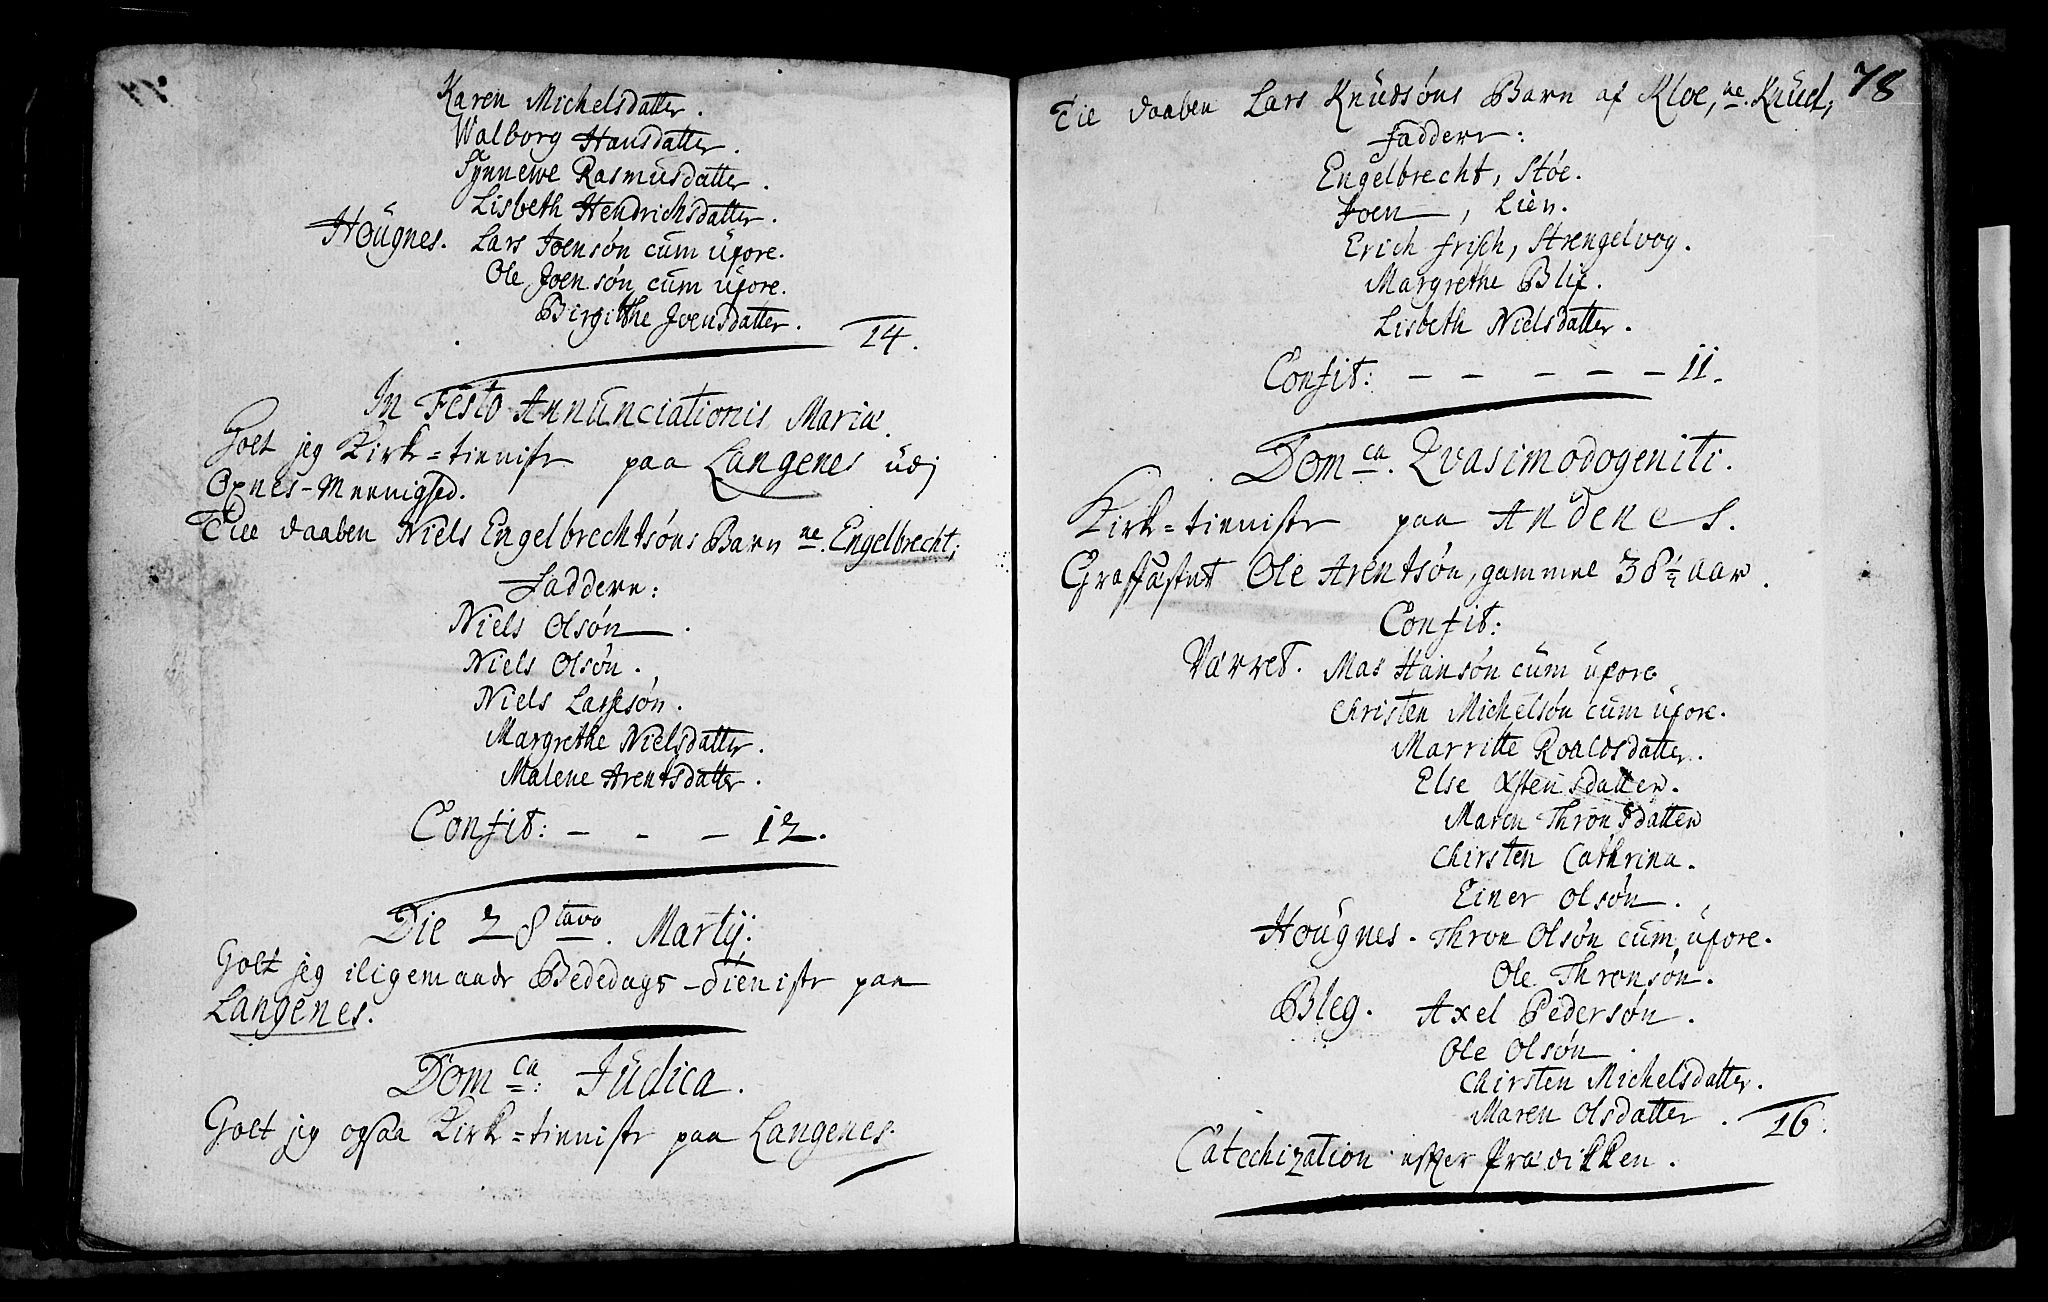 Karen Michelsdatter.
Walborg Hansdatter.
Synnewe Rasmusdatter.
Lisbeth Hendrichsdatter.
Hougnes. Lars Joensøn cum uxore.
Ole Joensøn cum uxore.
Birgithe Joensdatter. 14.
In Festo Annunciationis Mariæ.
Holt jeg Kirk=tienist paa Langenes udj
Øxnes-Meenighed.
Til daaben Niels Engelbrechtsøns Barn ne. Engelbrecht;
Faddere:
Niels Olsøn.
Niels Olsøn.
Niels Larssøn.
Margrethe Nielsdatter.
Malene Arentsdatter.
Confit: - - - 12.
Die 28 tavo. Martij.
Holt jeg iligemaade Bededags-tienist paa
Langenes.
Dom ca: Judica.
Holt jeg ogsaa Kirk=tienist paa Langenes.
78
Til daaben Lars Knudsøns Barn af Kloe, ne. Knud;
Faddere:
Engelbrecht, Støe.
Joen, Lien.
Erich Frisch, Strengelvog.
Margrethe Blix.
Lisbeth Nielsdatter.
Confit: - - - - - 11.
Dom ca. Qvasimodogeniti.
Kirk=tienist paa Andenes.
Graffæstet Ole Arentsøn, gammel 38 1/2 aar.
Confit:
Værret. Mas Hansøn cum uxore
Christen Michelsøn cum uxore.
Marritte Roaldsdatter.
Else Østensdatter.
Maren Thronsdatter
Chirsten Cathrina.
Einer Olsøn.
Hougnes. Thron Olsøn cum uxore.
Ole Thronsøn.
Bleg. Axel Pedersøn.
Ole Olsøn.
Chirsten Michelsdatter.
Maren Olsdatter. 16.
Catechization efter Prædikken.